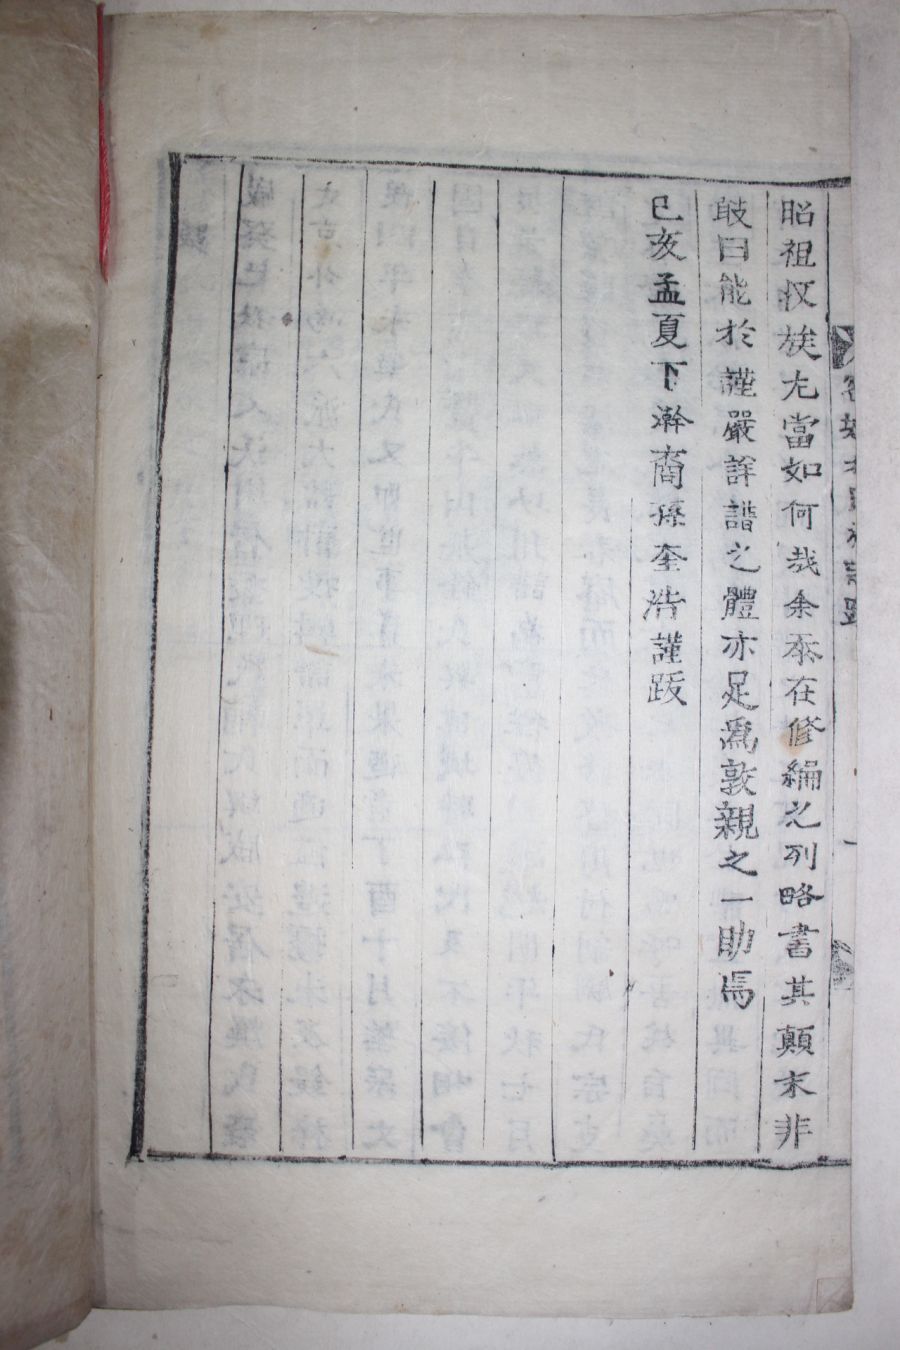 昭祖收族尤當如何哉余忝在修編之列略書其顛末非
敢曰能於謹嚴詳譜之體亦足爲敦親之一助焉
己亥孟夏下澣裔孫奎浩謹跋